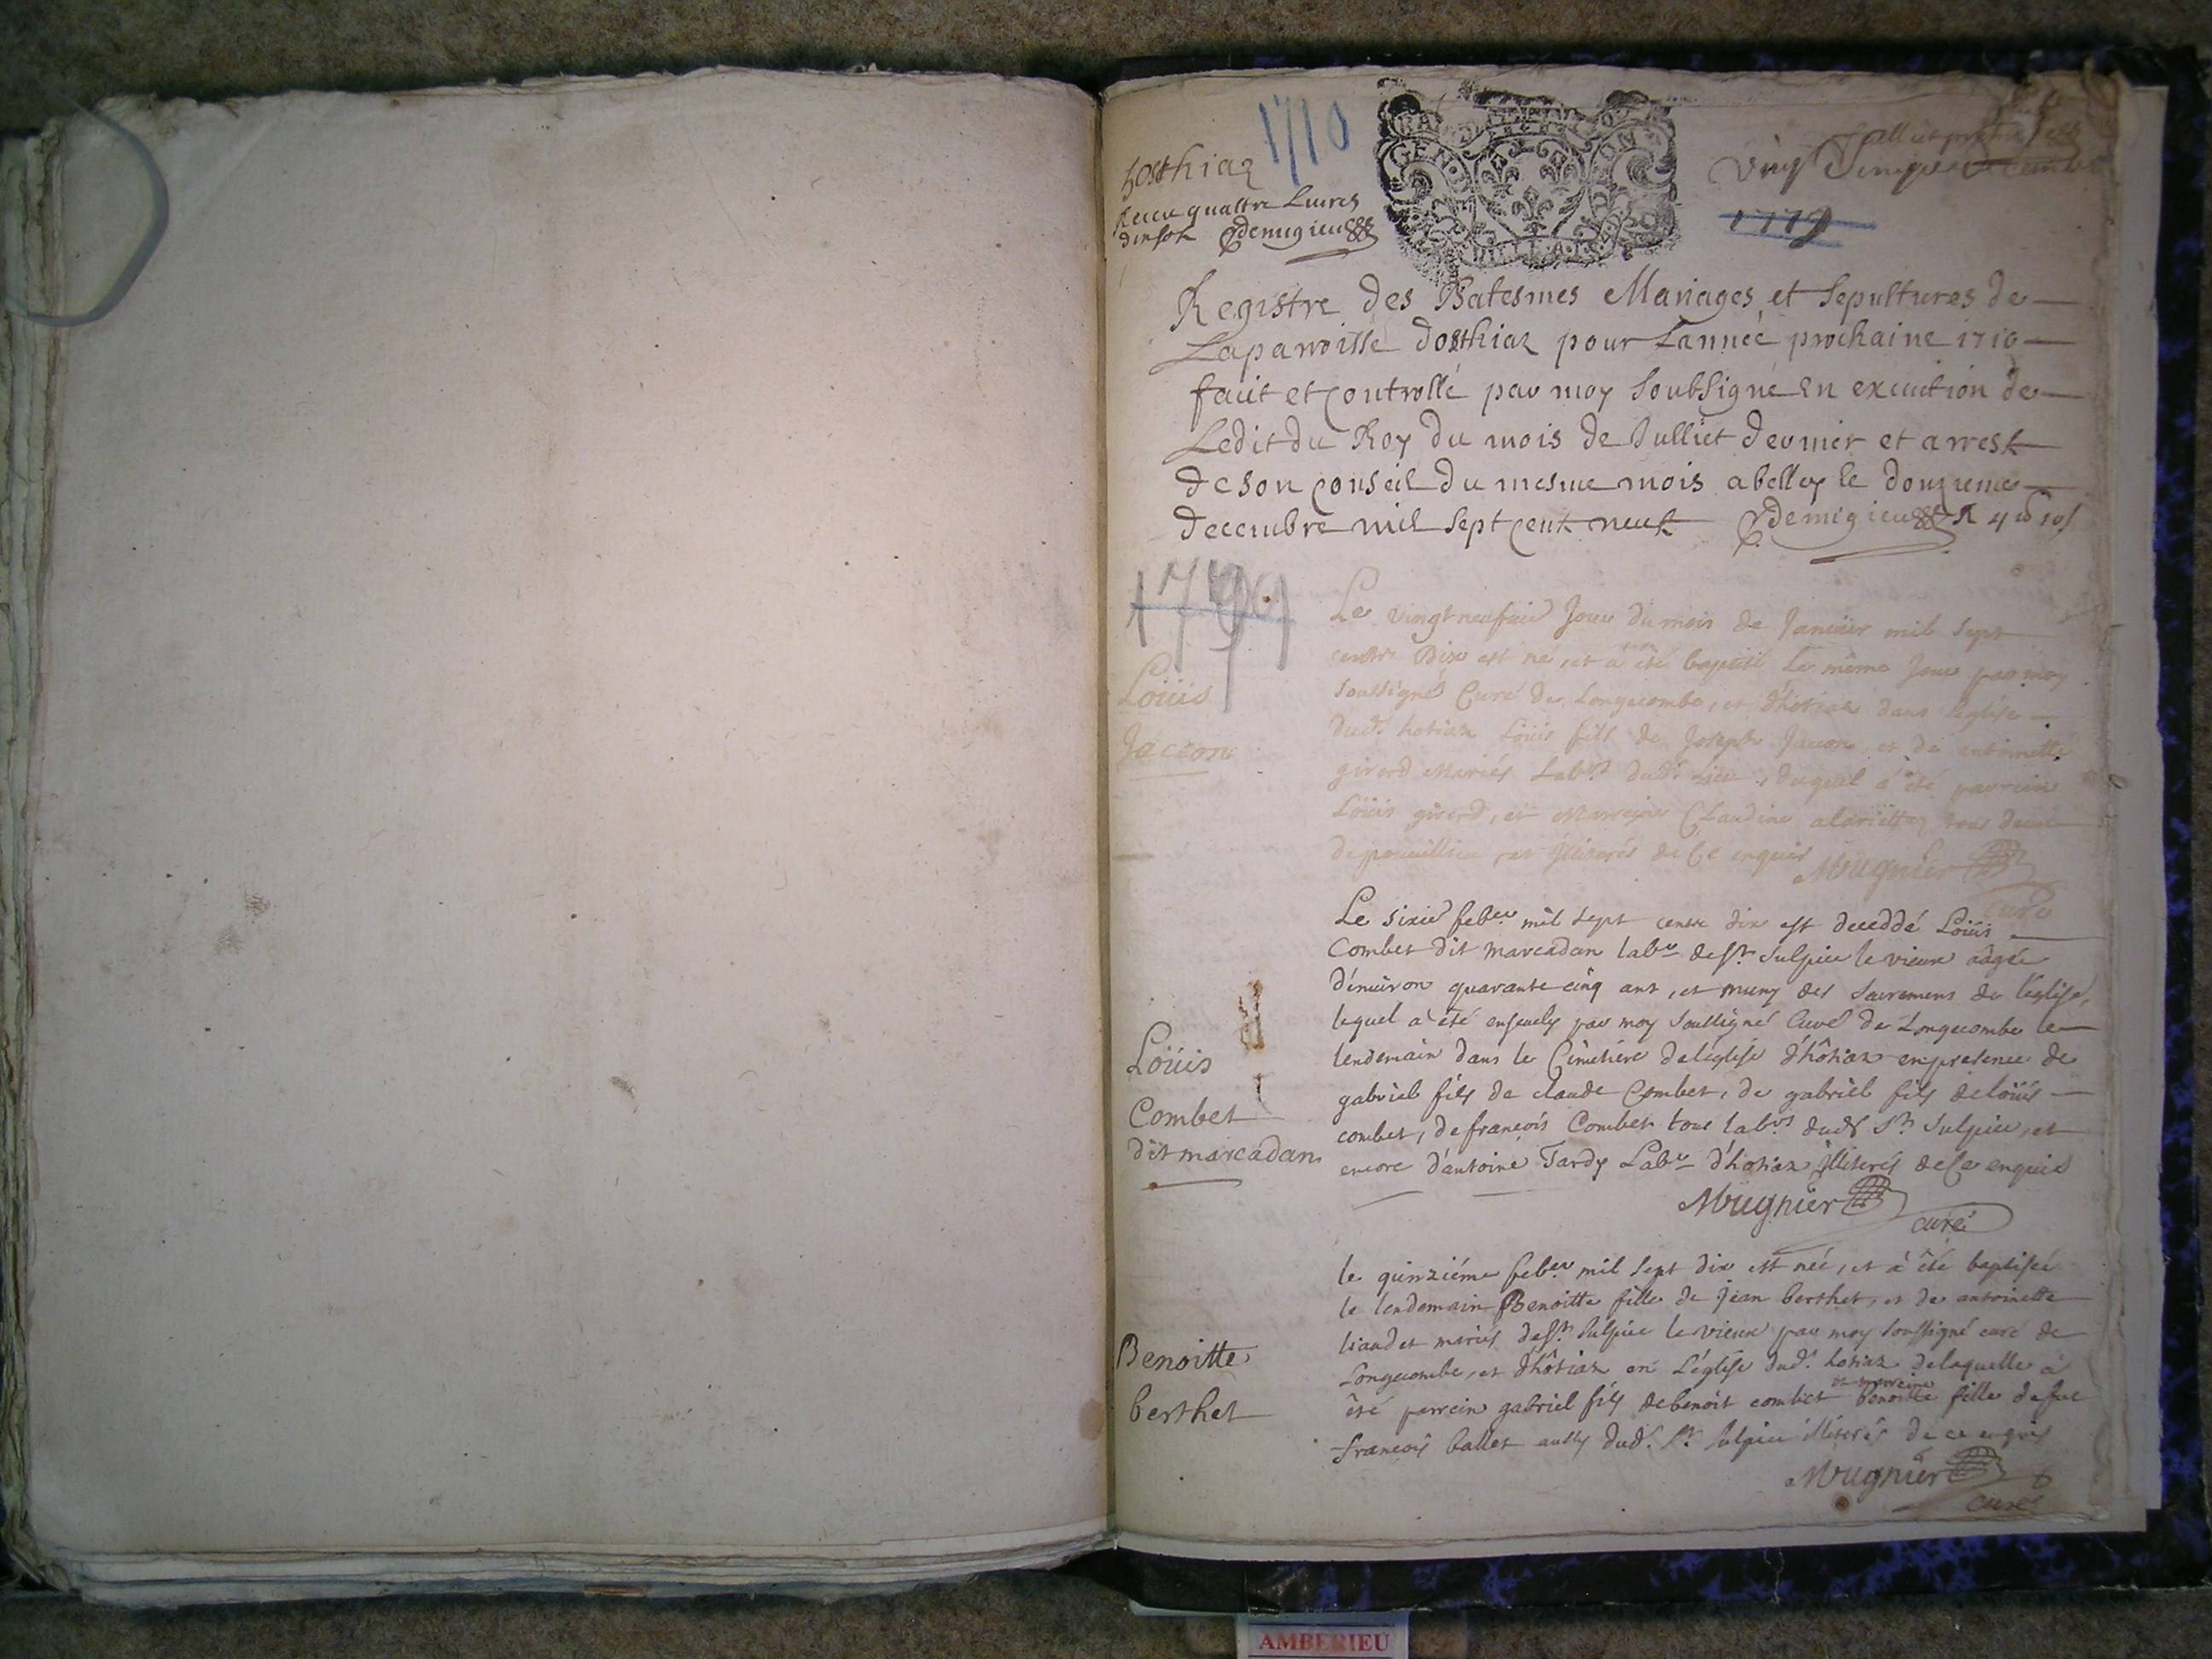 1710
hosthiaz
Receu quattre Livres
dix sols Demigieu
GENERALITE
vingt
1779
Registre des Batesmes Mariages et Sepultures de
Laparroisse dosthiaz pour Lannée prochaine 1710
faict et controllé par moy soubsigné en execution de
Ledit du Roy du mois de Julliet dernier et arrest
de son conseil du mesme mois abelley le douzieme
decembre mil sept cent neuf Demigieu R 4 lt 10 s
1799
Loüis
Jaccon
Le vingtneufvie Jour du mois de Janvier mil sept
centz Dix est né, et a été baptisé le même Jour par moy
soussigné Curé de Longecombe, et d'hôtiaz dans l'église
dud. hotiaz Loüis fils de Joseph Jaccon et de antoinette
girerd Mariés Labrs dudt Lieu, duquel a été parrein
Loüis girerd, et Marreine Claudine tous deux
et Jlliterés de Ce enquis Mugnier
curé
Loüis
Combet
dit marcadan
Le sixie feber mil sept centz dix est deceddé Loüis
Combet dit marcadan labr de st Sulpice le vieux aagée
d'énuiron quarante cinq ans, et muny des sacremens de l'église,
lequel a été enseuely par moy soussigné Curé de Longecombe le
lendemain dans le Cimetiére de l'eglise d'hôtiaz en presence de
gabriel fils de claude Combet, de gabriel fils de loüis
combet, de françois Combet tous labrs dudt St Sulpice, et
encore d'antoine Tardy Labr d'hotiaz Jlliterés de Ce enquis
Mugnier
curé
Benoitte
berthet
le quinziéme feber mil sept dix est née, et à été baptisée
le lendemain Benoitte fille de jean berthet, et de antoinette
liaudet mariés de st Sulpice le vieux par moy soussigné curé de
Longecombe, et d'hôtiaz en L'église dud. hotiaz de laquelle à
été parrein gabriel fils de benoit combet et marreine benoitte fille de feu
françois ballet aussy dud. St Sulpice illiterés de ce enquis
Mugnier
curé
AMBERIEU